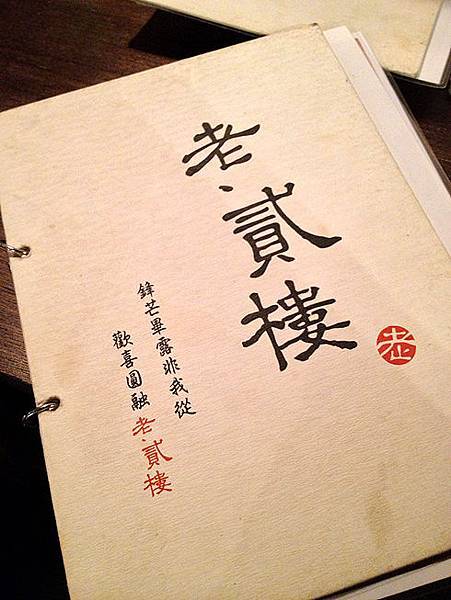 老·貳樓
鋒芒畢露非我從
歡喜圓融老·貳樓